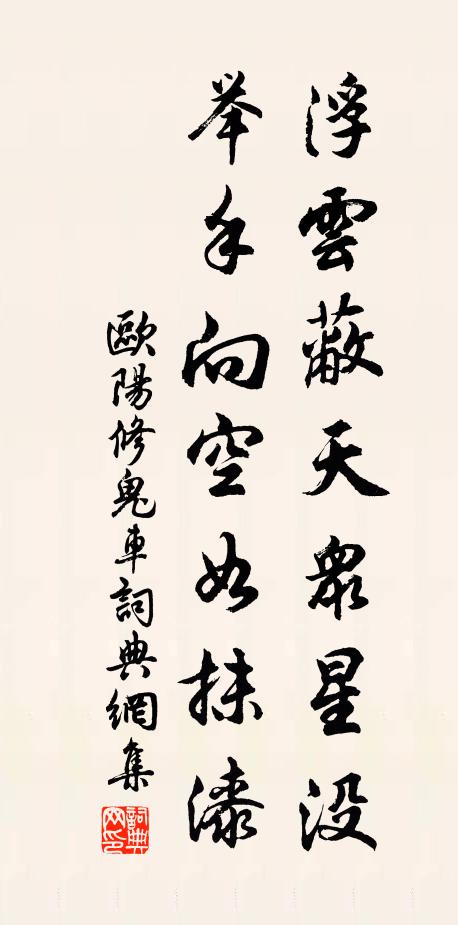 浮雲蔽天衆星没
举手向空如抹漆
歐陽修鬼車詞典網集
詞典网印